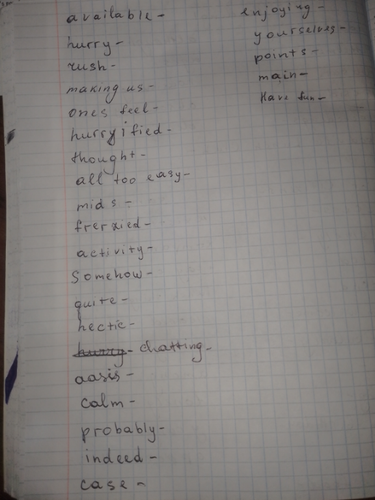 available -
hurry -
rush -
making us -
ones feel -
hurryified -
thought -
all too easy -
mids -
frerxied -
activity -
Somehow -
quite -
hectic -
hurry - chatting -
oasis -
calm -
probably -
indeed -
case -
enjoying -
yourselves -
points -
main -
Have fun -